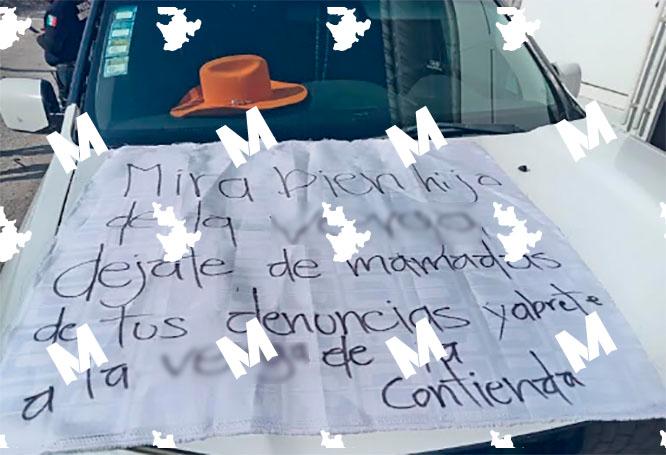 Mira bien hija
de la
dejate de mamadas
de tus denuncias yabrete
a la de la
contienda